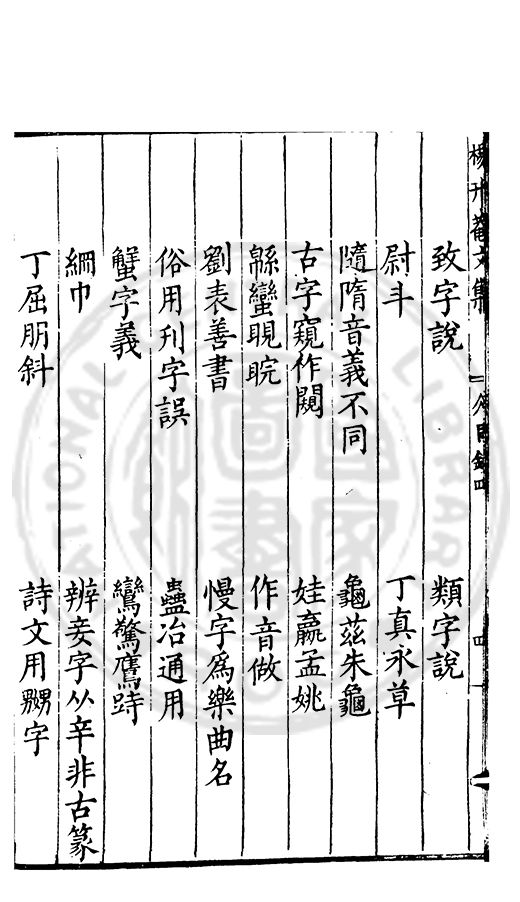 楊升菴文集 總目錄四
致字說 類字說
尉斗 丁真永草
隨隋音義不同 龜茲朱龜
古字窺作闚 娃嬴孟姚
緜蠻睍睆 作音做
劉表善書 慢字為樂曲名
俗用刋字誤 蠱冶通用
蟹字義 鸞驚鷹跱
網巾 辨妾字从辛非古篆
丁屈朋斜 詩文用嬲字